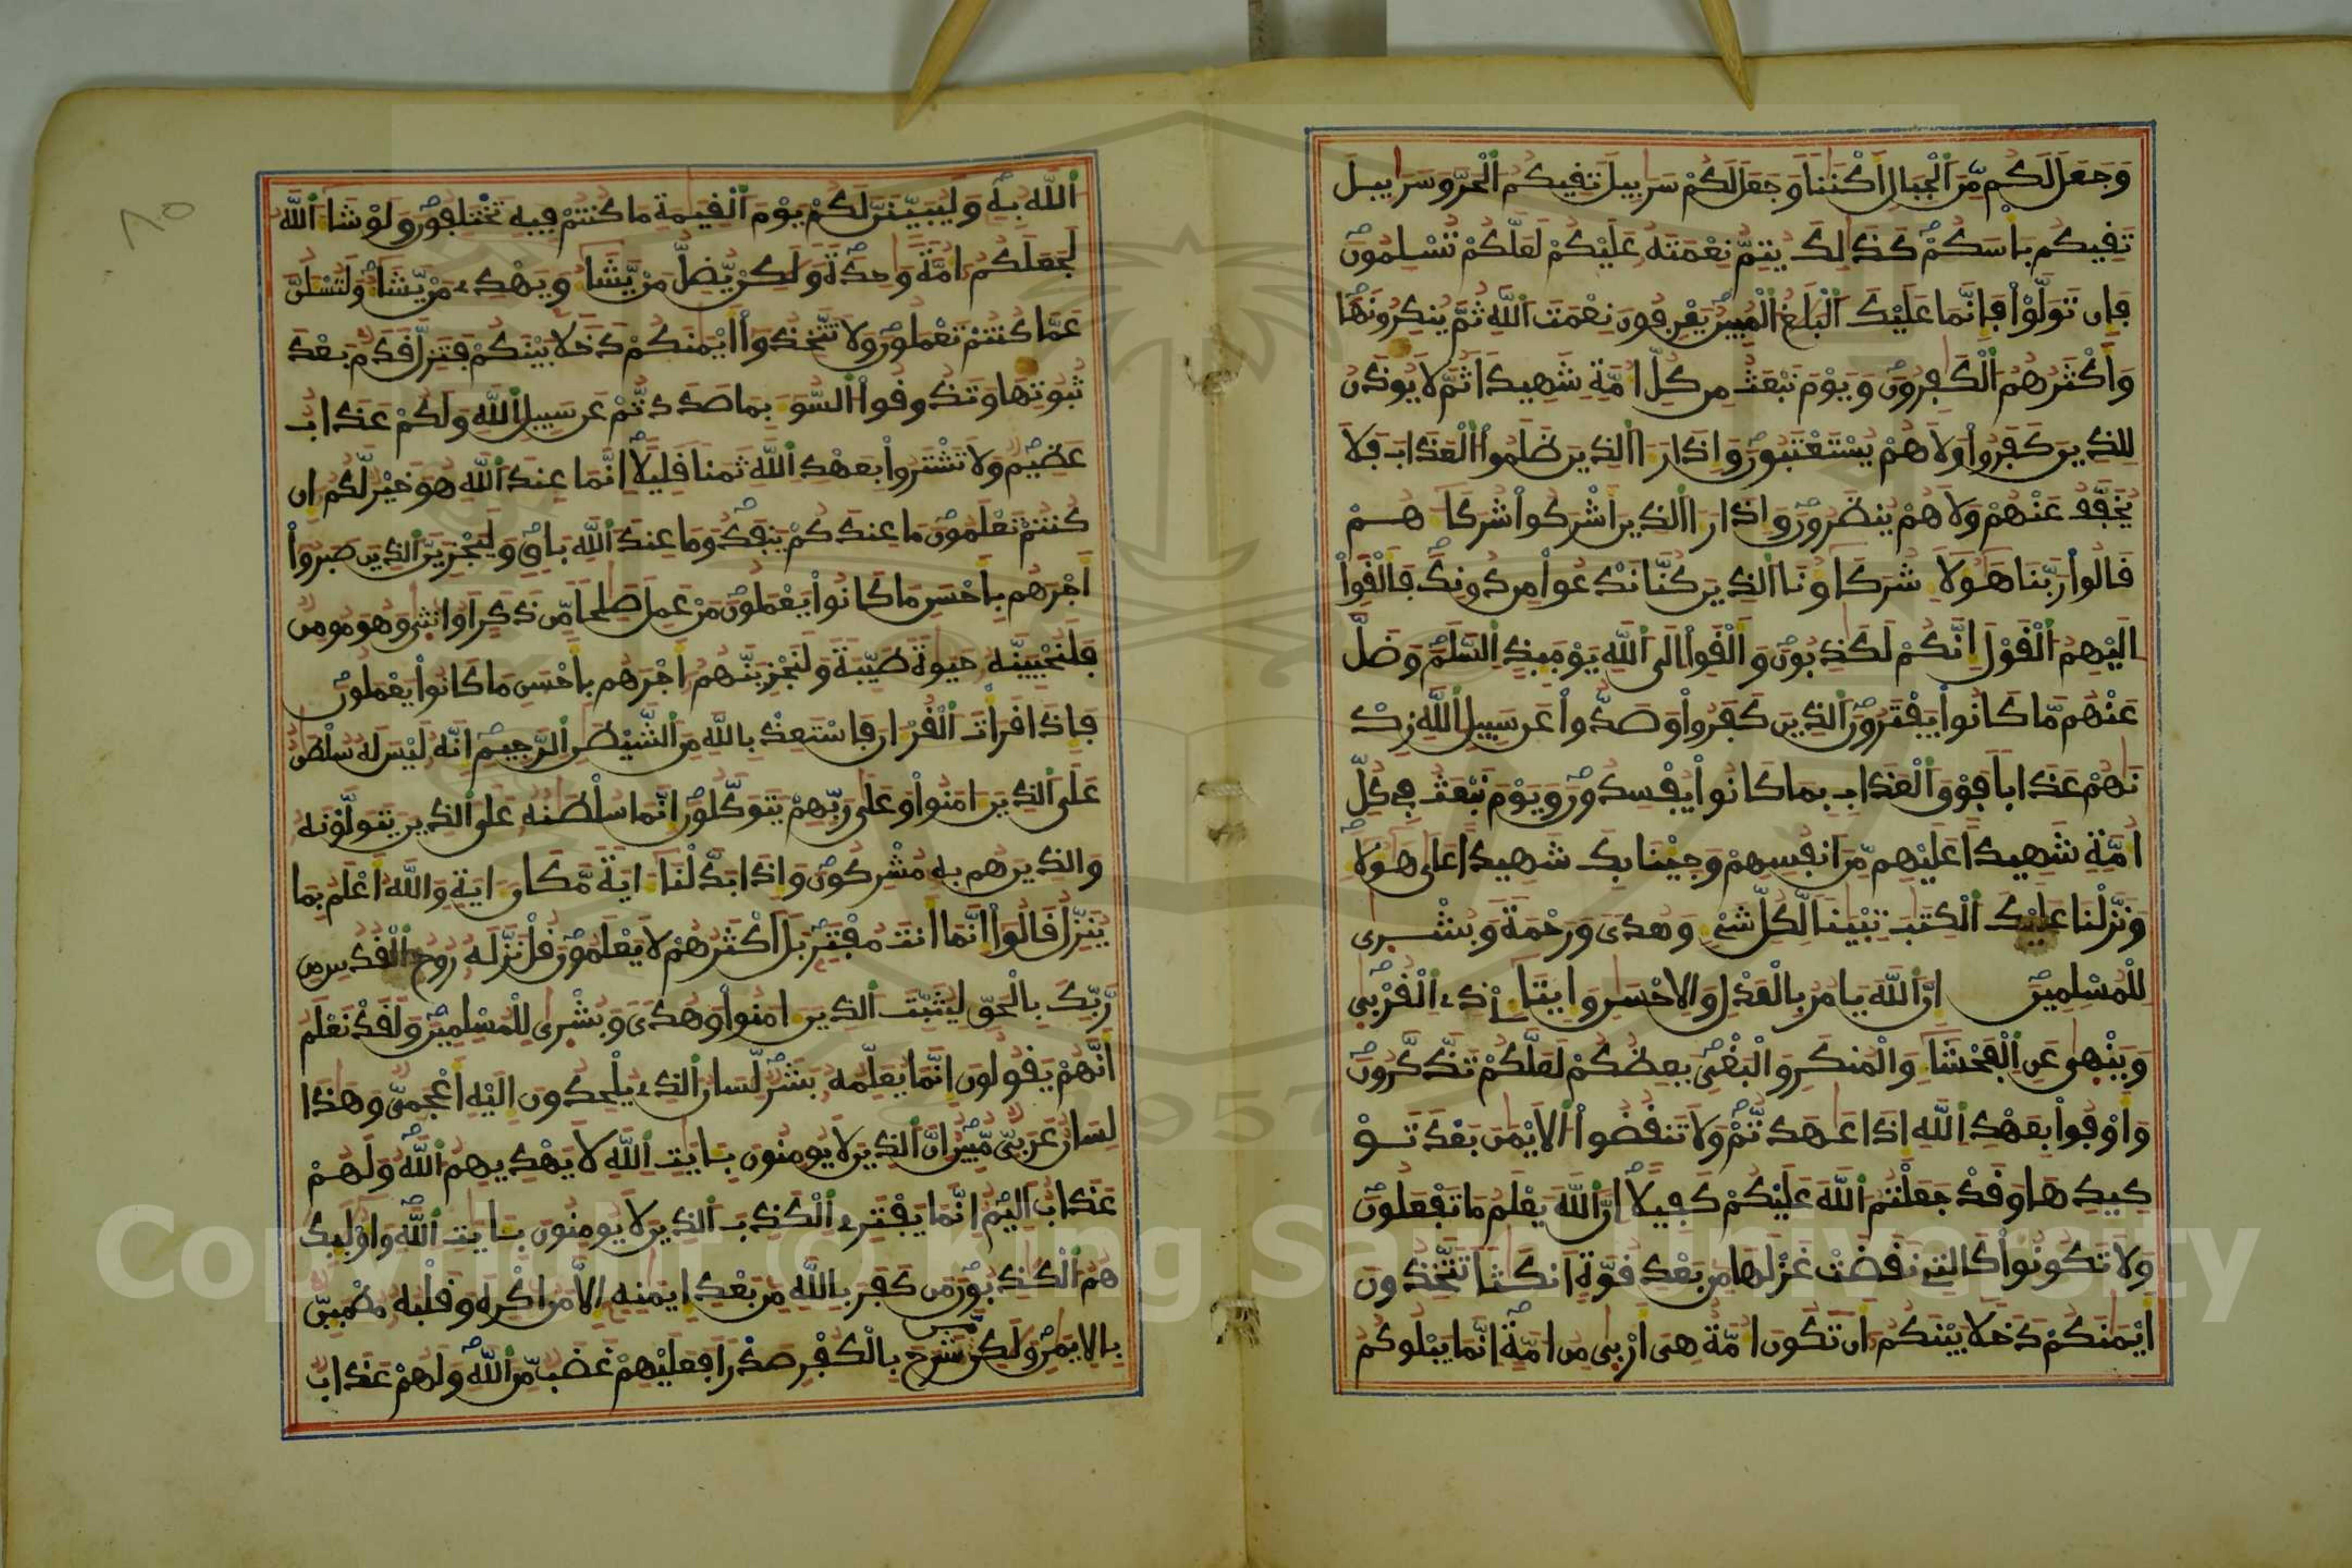 وَجَعَلَ لَكُم مِّنَ ٱلْجِبَالِ أَكْنَٰنا وَجَعَلَ لَكُمْ سَرَٰبِيلَ تَفِيكُمُ ٱلْحَرَّ وَسَرَٰبِيلَ
تَفِيكُم بَأْسَكُمْ كَذَٰلِكَ يُتِمُّ نِعْمَتَهُ عَلَيْكُمْ لَعَلَّكُمْ تُسْلِمُونَ
فَإِن تَوَلَّوْاْ فَإِنَّمَا عَلَيْكَ ٱلْبَلَٰغُ ٱلْمُبِينُ يَعْرِفُونَ نِعْمَتَ ٱللَّهِ ثُمَّ يُنكِرُونَهَا
وَأَكْثَرُهُمُ ٱلْكَٰفِرُونَ وَيَوْمَ نَبْعَثُ مِن كُلِّ أُمَّةٍ شَهِيدا ثُمَّ لَا يُوذَنُ
لِلذِينَ كَفَرُواْ وَلَا هُمْ يُسْتَعْتَبُونَ وَإِذَا رَءَا ٱلذِينَ ظَلَمُواْ ٱلْعَذَابَ فَلَا
يُخَفَّفُ عَنْهُمْ وَلَا هُمْ يُنظَرُونَ وَإِذَا رَءَا ٱلذِينَ أَشْرَكُواْ شُرَكَآءَهُمْ
قَالُواْ رَبَّنَا هَٰٓؤُلَآءِ شُرَكَآؤُنَا ٱلذِينَ كُنَّا نَدْعُواْ مِن دُونِكَ فَأَلْقَوِاْ
إِلَيْهِمُ ٱلْقَوْلَ إِنَّكُمْ لَكَٰذِبُونَ وَأَلْقَوِاْ إِلَى ٱللَّهِ يَوْمَئِذٍ ٱلسَّلَمَ وَضَلَّ
عَنْهُم مَّا كَانُواْ يَفْتَرُونَ ٱلذِينَ كَفَرُواْ وَصَدُّواْ عَن سَبِيلِ ٱللَّهِ زِدْ
نَٰهُمْ عَذَابا فَوْقَ ٱلْعَذَابِ بِمَا كَانُواْ يُفْسِدُونَ وَيَوْمَ نَبْعَثُ فِي كُلِّ
أُمَّةٍ شَهِيداً عَلَيْهِم مِّنَ انفُسِهِمْ وَجِئْنَا بِكَ شَهِيداً عَلَىٰ هَٰٓؤُلَآءِ
وَنَزَّلْنَا عَلَيْكَ ٱلْكِتَٰبَ تِبْيَٰنا لِّكُلِّ شَيْءٍ وَهُدىً وَرَحْمَةً وَبُشْرَىٰ
لِلْمُسْلِمِينَ إِنَّ ٱللَّهَ يَامُرُ بِالْعَدْلِ وَالِاحْسَٰنِ وَإِيتَآءِۦ ذِى ٱلْقُرْبَىٰ
وَيَنْهَىٰ عَنِ ٱلْفَحْشَآءِ وَالْمُنكَرِ وَالْبَغْىِ يَعِظُكُمْ لَعَلَّكُمْ تَذَّكَّرُونَ
وَأَوْفُواْ بِعَهْدِ ٱللَّهِ إِذَا عَٰهَدتُّمْ وَلَا تَنقُضُواْ ٱلَايْمَٰنَ بَعْدَ تَوْ
كِيدِهَا وَقَدْ جَعَلْتُمُ ٱللَّهَ عَلَيْكُمْ كَفِيلاً إِنَّ ٱللَّهَ يَعْلَمُ مَا تَفْعَلُونَ
وَلَا تَكُونُواْ كَالتِي نَقَضَتْ غَزْلَهَا مِن بَعْدِ قُوَّةٍ أَنكَٰثا تَتَّخِذُونَ
أَيْمَٰنَكُمْ دَخَلا بَيْنَكُمُ أَن تَكُونَ أُمَّةٌ هِىَ أَرْبَىٰ مِنُ امَّةٍ إِنَّمَا يَبْلُوكُمُ
ٱللَّهُ بِهِ وَلَيُبَيِّنَنَّ لَكُمْ يَوْمَ ٱلْقِيَٰمَةِ مَا كُنتُمْ فِيهِ تَخْتَلِفُونَ وَلَوْ شَآءَ ٱللَّهُ
لَجَعَلَكُمُ أُمَّةً وَٰحِدَةً وَلَٰكِنْ يُّضِلُّ مَنْ يَّشَآءُ وَيَهْدِى مَنْ يَّشَآءُ وَلَتُسْـَٔلُنَّ
عَمَّا كُنتُمْ تَعْمَلُونَ وَلَا تَتَّخِذُواْ أَيْمَٰنَكُمْ دَخَلا بَيْنَكُمْ فَتَزِلَّ قَدَمٌ بَعْدَ
ثُبُوتِهَا وَتَذُوقُواْ ٱلسُّوٓءَ بِمَا صَدَدتُّمْ عَن سَبِيلِ ٱللَّهِ وَلَكُمْ عَذَابٌ
عَظِيمٌ وَلَا تَشْتَرُواْ بِعَهْدِ ٱللَّهِ ثَمَنا قَلِيلاً إِنَّمَا عِندَ ٱللَّهِ هُوَ خَيْرٌ لَّكُمُ إِن
كُنتُمْ تَعْلَمُونَ مَا عِندَكُمْ يَنفَدُ وَمَا عِندَ ٱللَّهِ بَاقٍ وَلَيَجْزِيَنَّ ٱلذِينَ صَبَرُواْ
أَجْرَهُم بِأَحْسَنِ مَا كَانُواْ يَعْمَلُونَ مَنْ عَمِلَ صَٰلِحا مِّن ذَكَرٍ اَوُ انثَىٰ وَهُوَ مُومِنٌ
فَلَنُحْيِيَنَّهُ حَيَوٰةً طَيِّبَةً وَلَنَجْزِيَنَّهُمُ أَجْرَهُم بِأَحْسَنِ مَا كَانُواْ يَعْمَلُونَ
فَإِذَا قَرَأْتَ ٱلْقُرْءَانَ فَاسْتَعِذْ بِاللَّهِ مِنَ ٱلشَّيْطَٰنِ ٱلرَّجِيمِ إِنَّهُ لَيْسَ لَهُ سُلْطَٰنٌ
عَلَى ٱلذِينَ ءَامَنُواْ وَعَلَىٰ رَبِّهِمْ يَتَوَكَّلُونَ إِنَّمَا سُلْطَٰنُهُ عَلَى ٱلذِينَ يَتَوَلَّوْنَهُ
وَالذِينَ هُم بِهِ مُشْرِكُونَ وَإِذَا بَدَّلْنَآ ءَايَةً مَّكَانَ ءَايَةٍ وَاللَّهُ أَعْلَمُ بِمَا
يُنَزِّلُ قَالُواْ إِنَّمَا أَنتَ مُفْتَرٍ بَلَ اَكْثَرُهُمْ لَا يَعْلَمُونَ قُلْ نَزَّلَهُ رُوحُ ٱلْقُدُسِ مِن
رَّبِّكَ بِالْحَقِّ لِيُثَبِّتَ ٱلذِينَ ءَامَنُواْ وَهُدىً وَبُشْرَىٰ لِلْمُسْلِمِينَ وَلَقَدْ نَعْلَمُ
أَنَّهُمْ يَقُولُونَ إِنَّمَا يُعَلِّمُهُ بَشَرٌ لِّسَانُ ٱلذِى يُلْحِدُونَ إِلَيْهِ أَعْجَمِىٌّ وَهَٰذَا
لِسَانٌ عَرَبِىٌّ مُّبِينٌ إِنَّ ٱلذِينَ لَا يُومِنُونَ بِـَٔايَٰتِ ٱللَّهِ لَا يَهْدِيهِمُ ٱللَّهُ وَلَهُمْ
عَذَابٌ اَلِيمٌ إِنَّمَا يَفْتَرِى ٱلْكَذِبَ ٱلذِينَ لَا يُومِنُونَ بِـَٔايَٰتِ ٱللَّهِ وَأُوْلَٰٓئِكَ
هُمُ ٱلْكَٰذِبُونَ مَن كَفَرَ بِاللَّهِ مِن بَعْدِ إِيمَٰنِهِ إِلَّا مَنُ اكْرِهَ وَقَلْبُهُ مُطْمَئِنٌّ
بِالِايمَٰنِ وَلَٰكِن مَّن شَرَحَ بِالْكُفْرِ صَدْرا فَعَلَيْهِمْ غَضَبٌ مِّنَ ٱللَّهِ وَلَهُمْ عَذَابٌ
٨٥
Copyright © King Saud University
1957